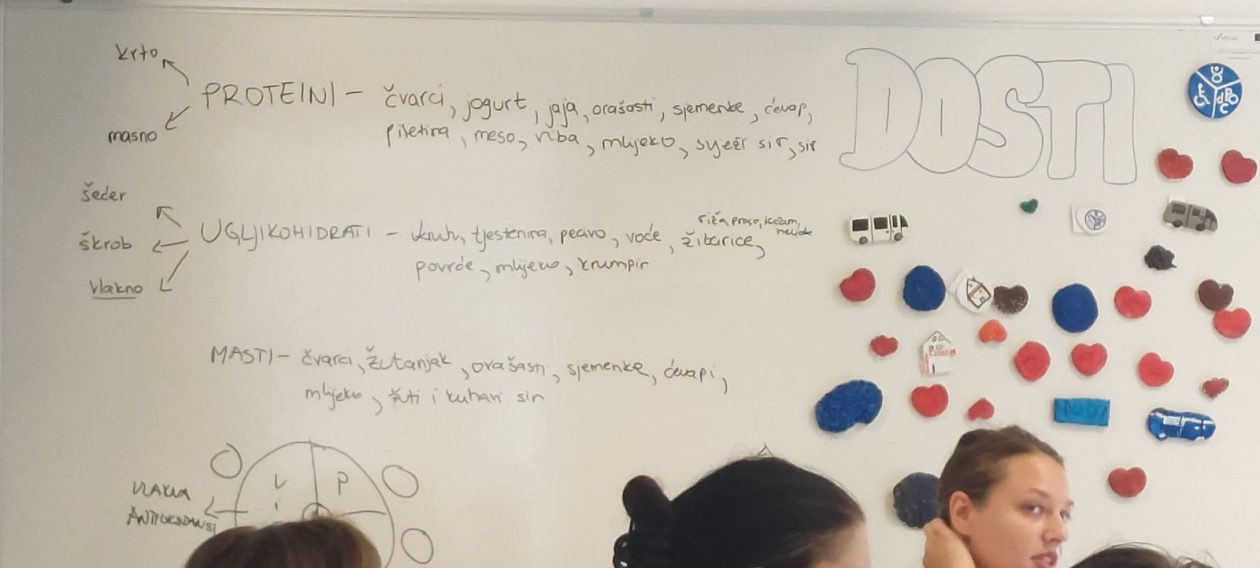 krto
PROTEINI - čvarci, jogurt, jaja, orašasti, sjemenke, ćevap,
masno
piletina, meso, riba, mlijeko, svježi sir, sir
DOSTI
šećer
škrob
vlakno
UGLJIKOHIDRATI - kruh, tjestenina, pecivo, voće, žitarice,
riža, proso,
povrće, mlijeko, krumpir
MASTI - čvarci, žutanjak, orašasti, sjemenke, ćevapi,
mlijeko, žuti i kuhani sir
VLAKNA
P